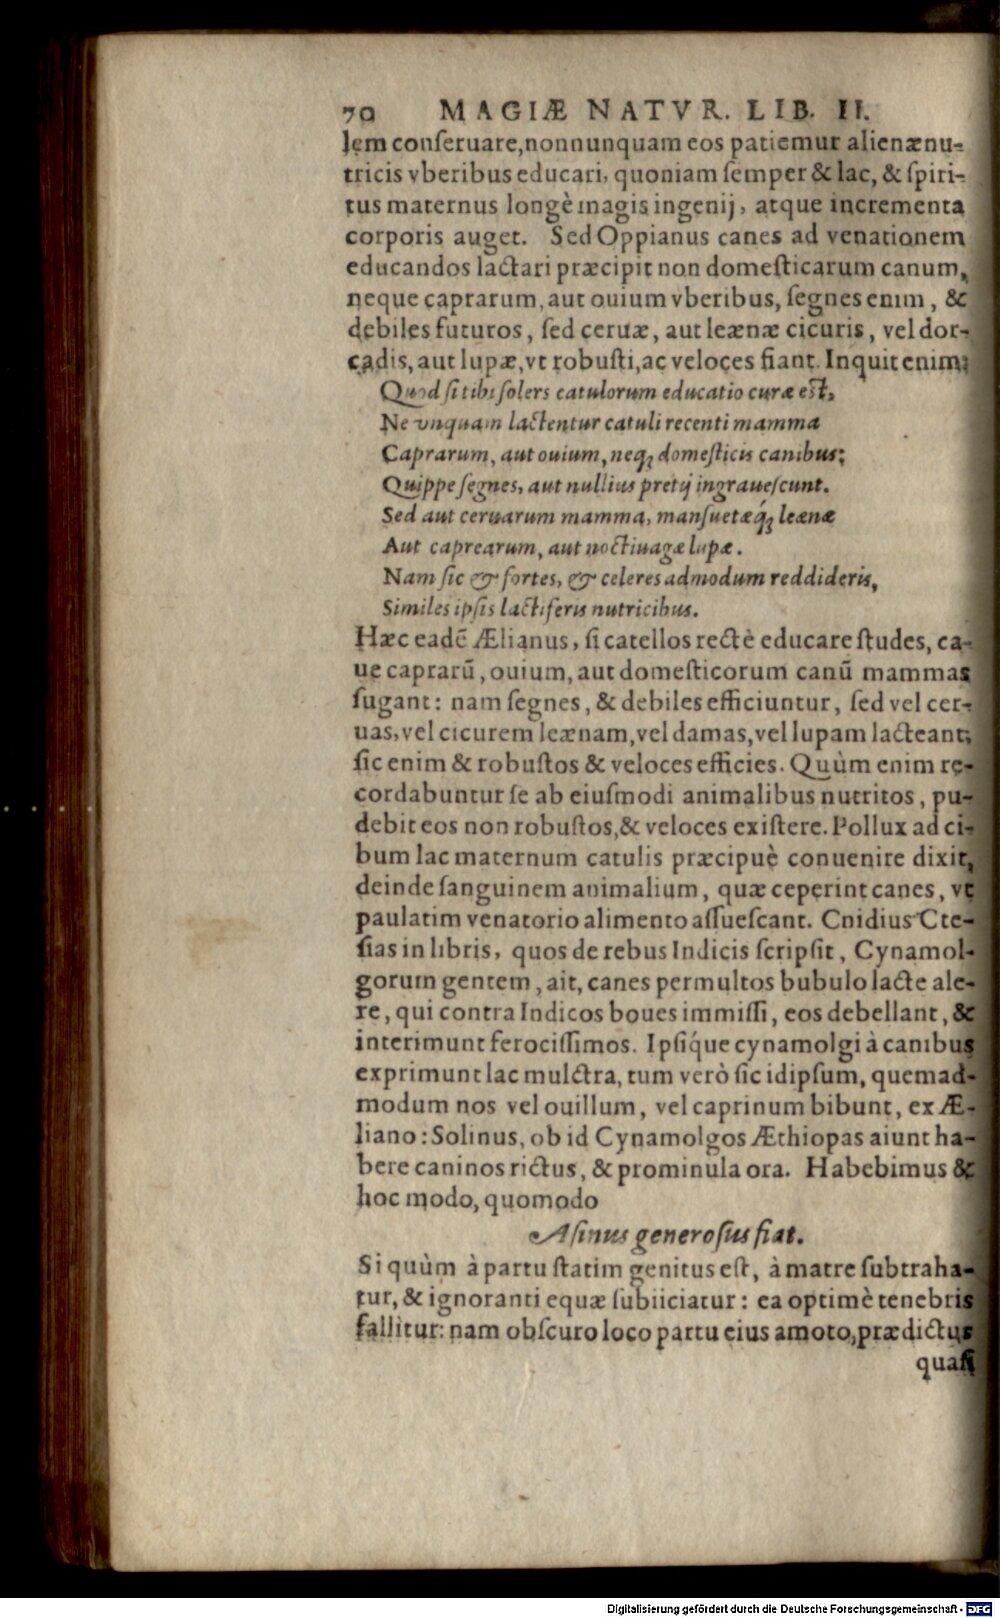 70 MAGIÆ NATVR. LIB. II.
lem conſeruare, nonnunquam eos patiemur alienæ nu-
tricis vberibus educari, quoniam ſemper & lac, & ſpiri-
tus maternus longè magis ingenij, atque incrementa
corporis auget. Sed Oppianus canes ad venationem
educandos lactari præcipit non domeſticarum canum,
neque caprarum, aut ouium vberibus, ſegnes enim, &
debiles futuros, ſed ceruæ, aut leænæ cicuris, vel dor-
cadis, aut lupæ, vt robuſti, ac veloces fiant. Inquit enim:
Quod ſi tibi ſolers catulorum educatio curæ eſt,
Ne vnquam lactentur catuli recenti mamma
Caprarum, aut ouium, neqꝫ domeſticis canibus;
Quippe ſegnes, aut nullius pretij ingraueſcunt.
Sed aut ceruarum mamma, manſuetæq́ꝫ leænæ
Aut caprearum, aut noctiuagæ lupæ.
Nam ſic & fortes, & celeres admodum reddideris,
Similes ipſis lactiferis nutricibus.
Hæc eadē Ælianus, ſi catellos rectè educare ſtudes, ca-
ue caprarū, ouium, aut domeſticorum canū mammas
ſugant: nam ſegnes, & debiles efficiuntur, ſed vel cer-
uas, vel cicurem leænam, vel damas, vel lupam lacteant;
ſic enim & robuſtos & veloces efficies. Quùm enim re-
cordabuntur ſe ab eiuſmodi animalibus nutritos, pu-
debit eos non robuſtos, & veloces exiſtere. Pollux ad ci-
bum lac maternum catulis præcipuè conuenire dixit,
deinde ſanguinem animalium, quæ ceperint canes, vt
paulatim venatorio alimento aſſueſcant. Cnidius Cte-
ſias in libris, quos de rebus Indicis ſcripſit, Cynamol-
gorum gentem, ait, canes permultos bubulo lacte ale-
re, qui contra Indicos boues immiſſi, eos debellant, &
interimunt ferociſſimos. Ipſíque cynamolgi à canibus
exprimunt lac mulctra, tum verò ſic idipſum, quemad-
modum nos vel ouillum, vel caprinum bibunt, ex Æ-
liano: Solinus, ob id Cynamolgos Æthiopas aiunt ha-
bere caninos rictus, & prominula ora. Habebimus &
hoc modo, quomodo
Aſinus generoſius fiat.
Si quùm à partu ſtatim genitus eſt, à matre ſubtraha-
tur, & ignoranti equæ ſubiiciatur: ea optimè tenebris
fallitur: nam obſcuro loco partu eius amoto, prædictus
quaſi
Digitalisierung gefördert durch die Deutsche Forschungsgemeinschaft - DFG